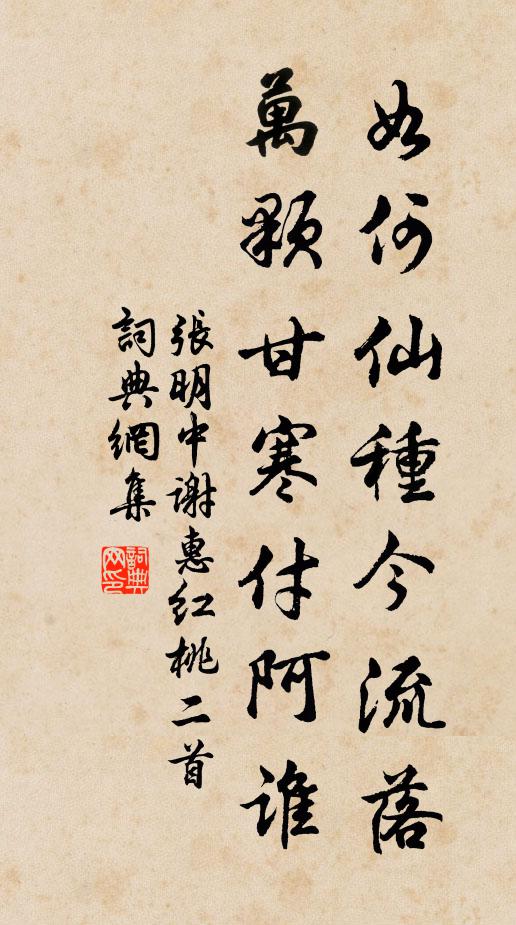 如何仙種今流落
萬顆甘寒付阿誰
張明中謝惠紅桃二首
詞典網集
詞典網印